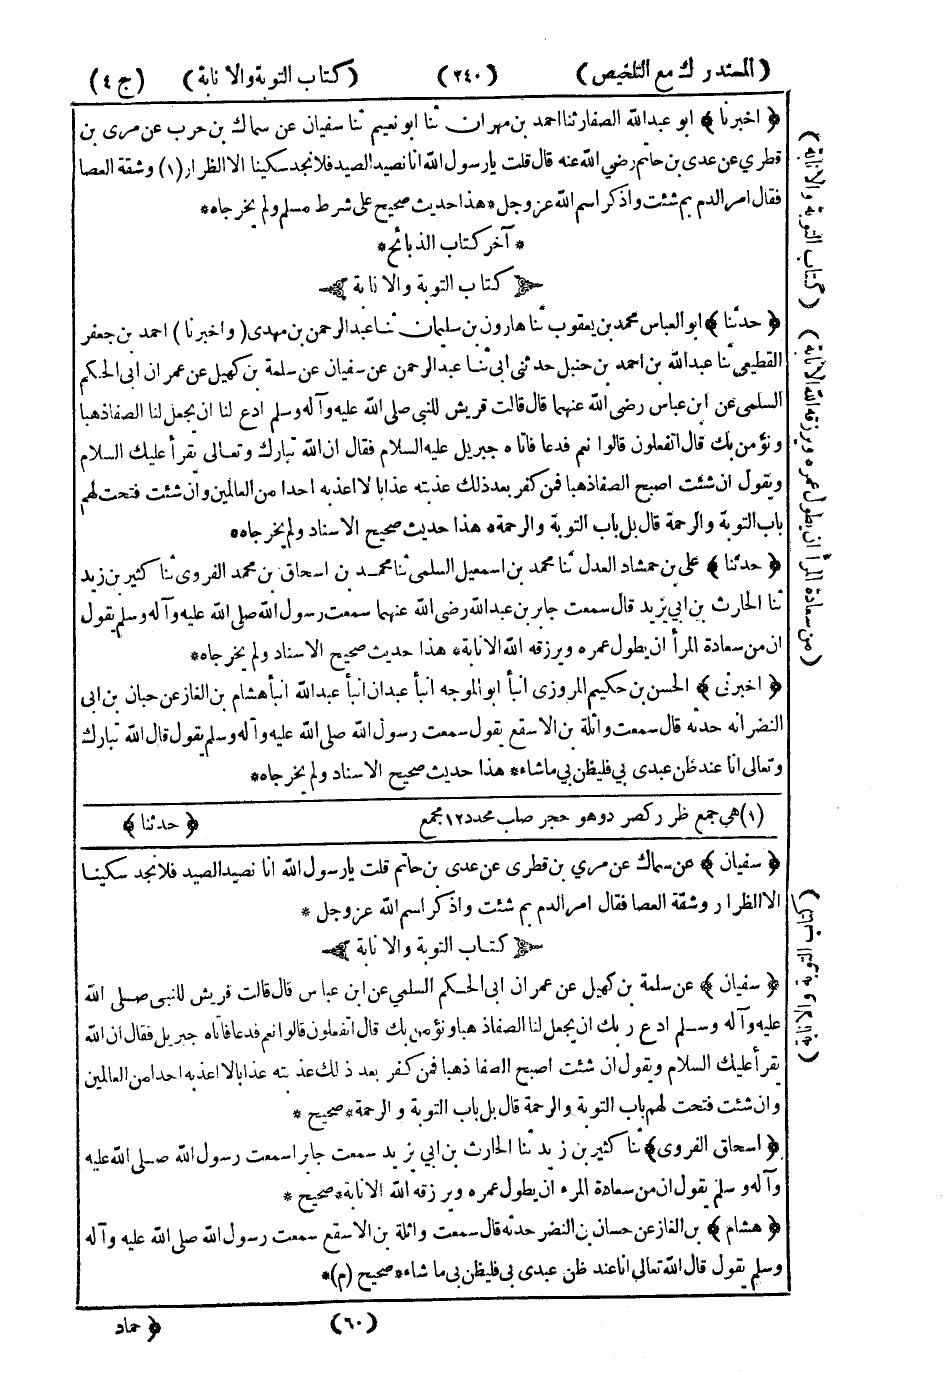 (المستدرك مع التلخيص) (٢٤٠) (كتاب التوبة والانابة) (ج ٤)
﴿ اخبرنا ﴾ ابو عبدالله الصفار ثنا احمد بن مهران ثنا ابو نعيم ثنا سفيان عن سماك بن حرب عن مرى بن
قطري عن عدى بن حاتم رضي الله عنه قال قلت يارسول الله انا نصيد الصيد فلا نجد سكينا الا الظرار (١) وشقة العصا
فقال امر الدم بم شئت واذكر اسم الله عزوجل * هذا حديث صحيح على شرط مسلم ولم يخرجاه *
* آخر كتاب الذبائح *
كتاب التوبة والانابة
﴿ حدثنا ﴾ ابو العباس محمد بن يعقوب ثنا هارون بن سليمان ثنا عبدالرحمن بن مهدى (واخبرنا) احمد بن جعفر
القطيعى ثنا عبدالله بن احمد بن حنبل حدثنى ابى ثنا عبدالرحمن عن سفيان عن سلمة بن كهيل عن عمران ابى الحكم
السلمى عن ابن عباس رضى الله عنهما قال قالت قريش للنبى صلى الله عليه وآله وسلم ادع لنا ان يجعل لنا الصفا ذهبا
ونؤمن بك قال اتفعلون قالوا نعم فدعا فاتاه جبريل عليه السلام فقال ان الله تبارك وتعالى يقرأ عليك السلام
ويقول ان شئت اصبح الصفا ذهبا فمن كفر بعد ذلك عذبته عذابا لا اعذبه احدا من العالمين وان شئت فتحت لهم
باب التوبة والرحمة قال بل باب التوبة والرحمة * هذا حديث صحيح الاسناد ولم يخرجاه *
﴿ حدثنا ﴾ على بن حمشاد العدل ثنا محمد بن اسمعيل السلمى ثنا محمد بن اسحاق بن محمد الفروى ثنا كثير بن زيد
ثنا الحارث بن ابى يزيد قال سمعت جابر بن عبدالله رضى الله عنهما سمعت رسول الله صلى الله عليه وآله وسلم يقول
ان من سعادة المرأ ان يطول عمره ويرزقه الله الانابة * هذا حديث صحيح الاسناد ولم يخرجاه *
﴿ اخبرنى ﴾ الحسن بن حكيم المروزى انبأ ابو الموجه انبأ عبدان انبأ عبدالله انبأ هشام بن الغاز عن حبان بن ابى
النضر انه حدثه قال سمعت واثلة بن الاسقع يقول سمعت رسول الله صلى الله عليه وآله وسلم يقول قال الله تبارك
وتعالى انا عند ظن عبدى بى فليظن بى ماشاء * هذا حديث صحيح الاسناد ولم يخرجاه *
(١) هى جمع ظرر كصرد وهو حجر صلب محدد ١٢ مجمع ﴿ حدثنا ﴾
﴿ سفيان ﴾ عن سماك عن مري بن قطرى عن عدى بن حاتم قلت يارسول الله انا نصيد الصيد فلا نجد سكينا
الا الظرار وشقة العصا فقال امر الدم بم شئت واذكر اسم الله عز وجل *
كتاب التوبة والانابة
﴿ سفيان ﴾ عن سلمة بن كهيل عن عمران ابى الحكم السلمي عن ابن عباس قال قالت قريش للنبى صلى الله
عليه وآله وسلم ادع ربك ان يجعل لنا الصفا ذهبا ونؤمن بك قال اتفعلون قالوا نعم فدعا فاتاه جبريل فقال ان الله
يقرأ عليك السلام ويقول ان شئت اصبح الصفا ذهبا فمن كفر بعد ذلك عذبته عذابا لا اعذبه احدا من العالمين
وان شئت فتحت لهم باب التوبة والرحمة قال بل باب التوبة والرحمة * صحيح *
﴿ اسحاق الفروى ﴾ ثنا كثير بن زيد ثنا الحارث بن ابي يزيد سمعت جابرا سمعت رسول الله صلى الله عليه
وآله وسلم يقول ان من سعادة المرء ان يطول عمره ويرزقه الله الانابة * صحيح *
﴿ هشام ﴾ بن الغاز عن حسان بن النضر حدثه قال سمعت واثلة بن الاسقع سمعت رسول الله صلى الله عليه وآله
وسلم يقول قال الله تعالى انا عند ظن عبدى بى فليظن بى ما شاء * صحيح (م) *
(٦٠) ﴿ حماد
(كتاب التوبة والانابة)
(من سعادة المرأ ان يطول عمره ويرزقه الله الانابة)